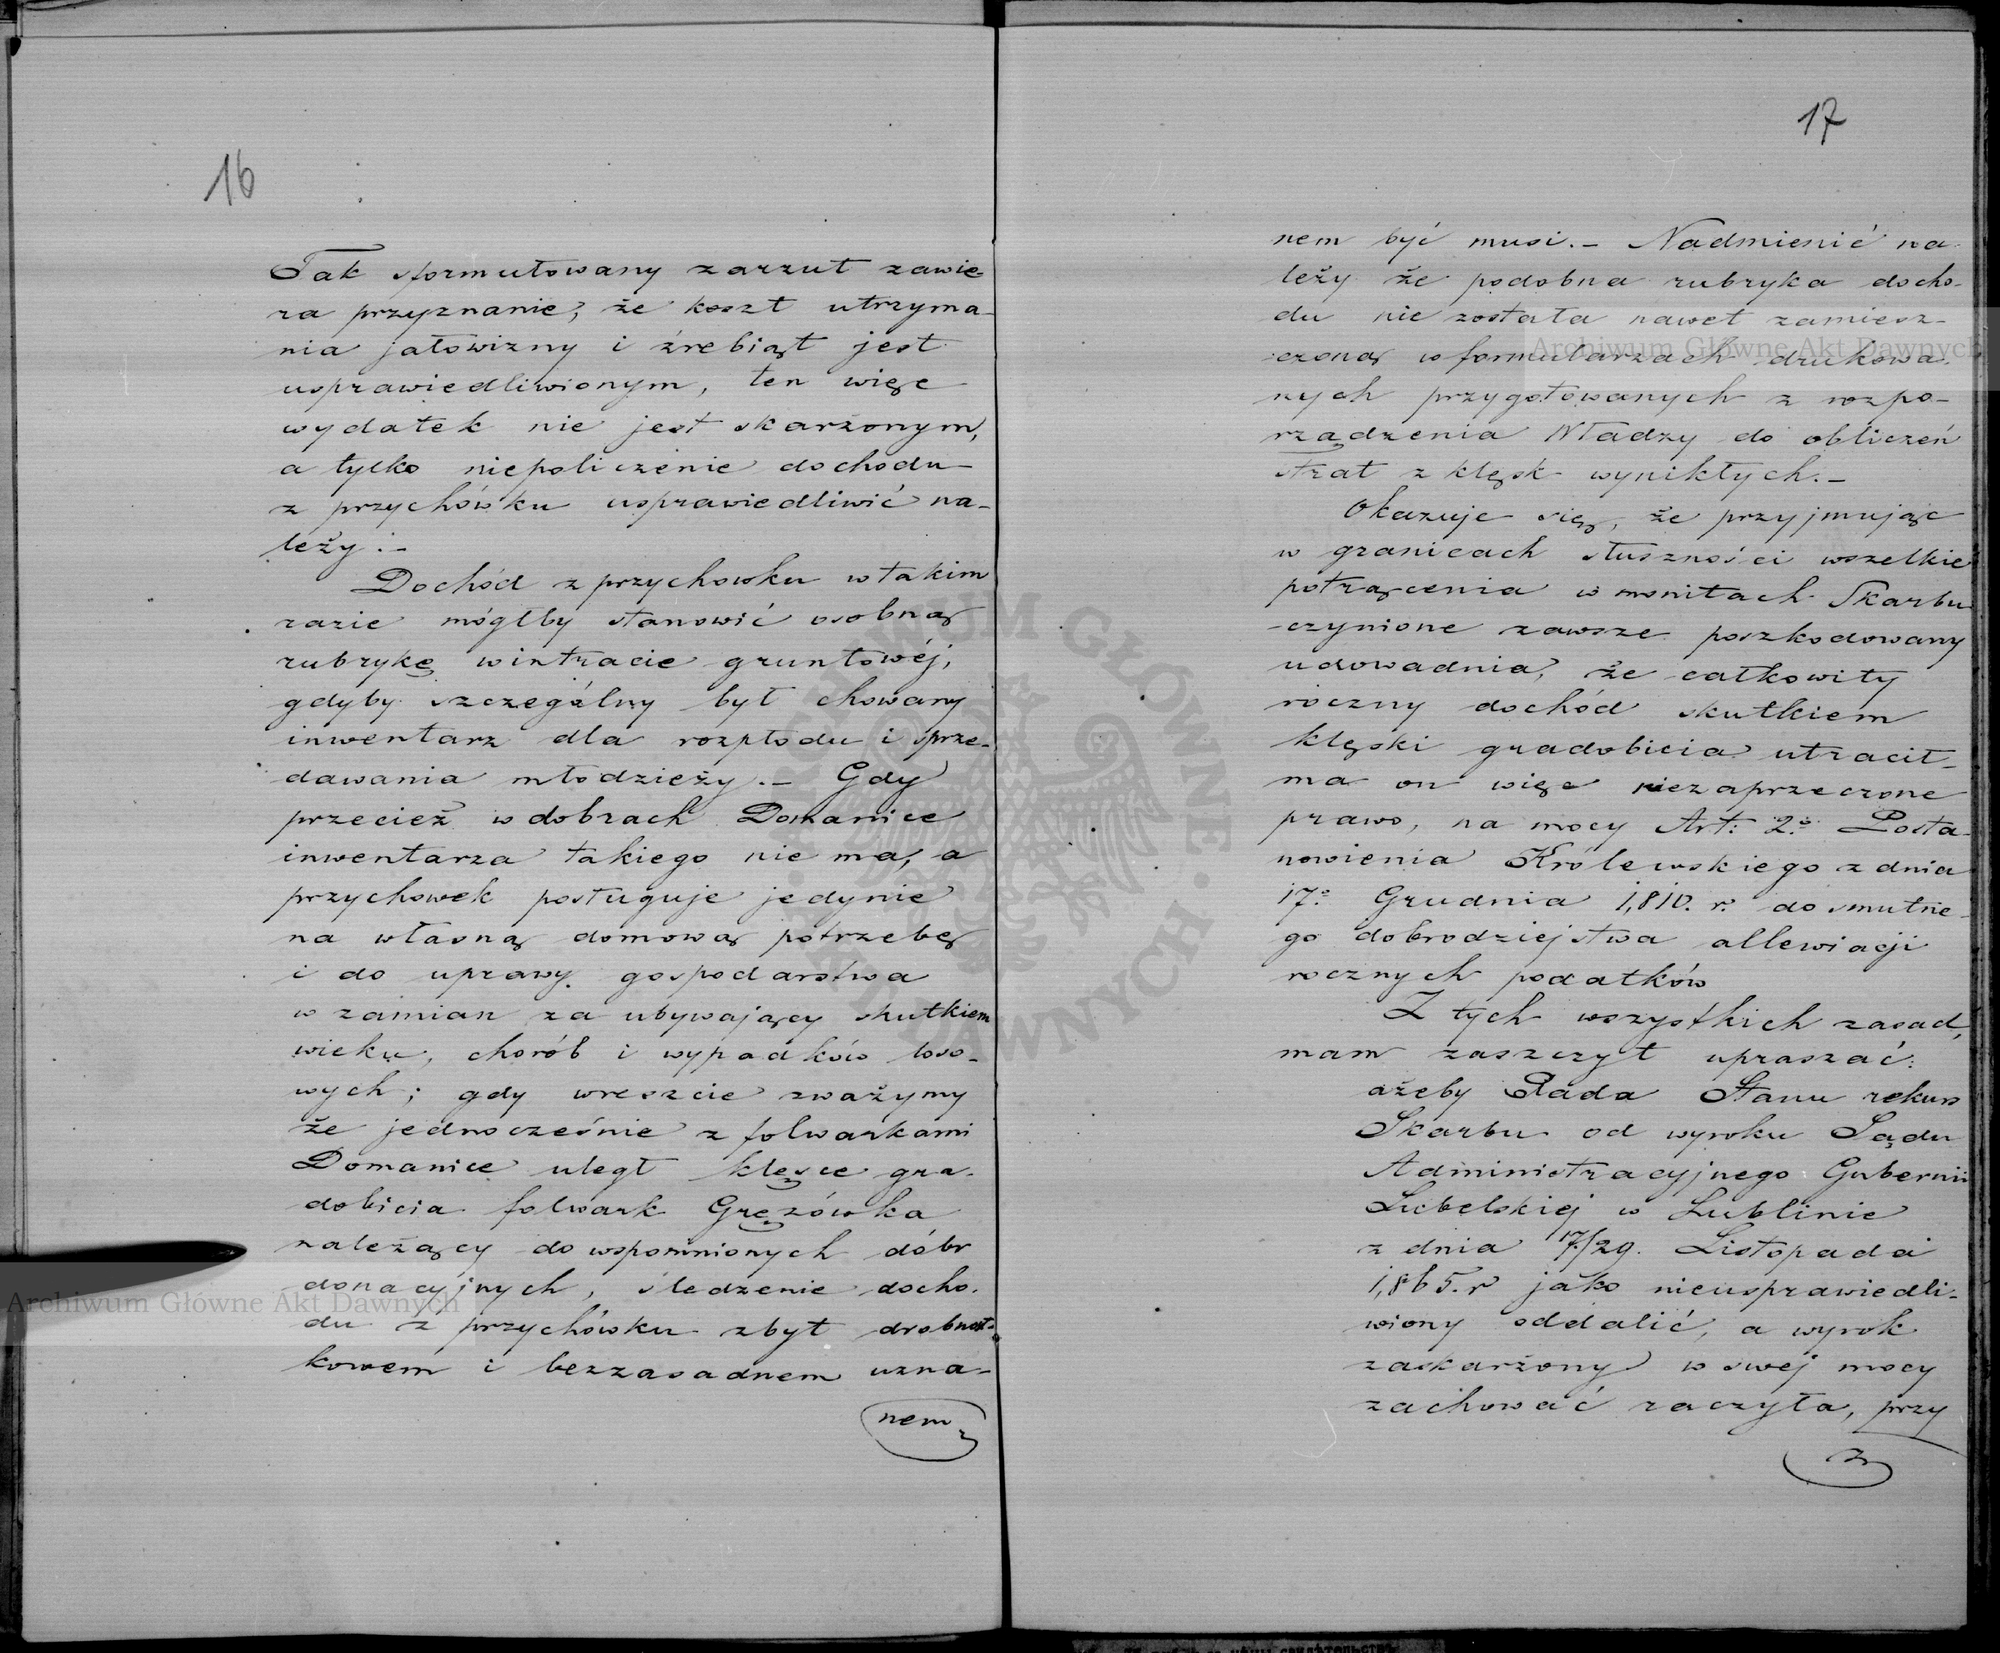 16
Tak sformułowany zarzut zawie-
ra przyznanie, że koszt utrzyma-
nia jałowizny i źrebiąt jest
usprawiedliwionym, ten więc
wydatek nie jest skarżonym,
a tylko niepoliczenie dochodu
z przychówku usprawiedliwić na-
leży.-
Dochód z przychowku w takim
razie mógłby stanowić osobną
rubrykę w intracie gruntowéj,
gdyby szczególny był chowany
inwentarz dla rozpłodu i sprze-
dawania młodzieży.- Gdy
przecież w dobrach Domanice
inwentarza takiego nie ma, a
przychowek posługuje jedynie
na własną domową potrzebę
i do uprawy gospodarstwa
w zamian za ubywający skutkiem
wieku, chorób i wypadków loso-
wych; gdy wreszcie zważymy
że jednocześnie z folwarkami
Domanice uległ klęsce gra-
dobicia folwark Gręzówka
należący do wspomnionych dóbr
donacyjnych, śledzenie docho-
du z przychówku zbyt drobnost-
kowem i bezzasadnem uzna-
nem
17
nem być musi.- Nadmienić na-
leży że podobna rubryka docho-
du nie została nawet zamiesz-
czoną w formularzach drukowa-
nych przygotowanych z rozpo-
rządzenia Władzy do obliczeń
strat z klęsk wynikłych.-
Okazuje się, że przyjmując
w granicach słuszności wszelkie
potrącenia w monitach Skarbu
czynione zawsze poszkodowany
udowadnia, że całkowity
roczny dochód skutkiem
klęski gradobicia utracił-
ma on więc niezaprzeczone
prawo, na mocy Art: 2.º Posta-
nowienia Królewskiego z dnia
17º Grudnia 1,810. r. do smutne-
go dobrodziejstwa allewiacji
rocznych podatków
Z tych wszystkich zasad,
mam zaszczyt upraszać:
ażeby Rada Stanu rekurs
Skarbu od wyroku Sądu
Administracyjnego Gubernii
Lubelskiej w Lublinie
z dnia 17/29. Listopada
1,865. r jako nieusprawiedli-
wiony oddalić, a wyrok
zaskarżony w swej mocy
zachować raczyła, przy
Archiwum Główne Akt Dawnych
Archiwum Główne Akt Dawnych
ARCHIWUM GŁÓWNE AKT DAWNYCH